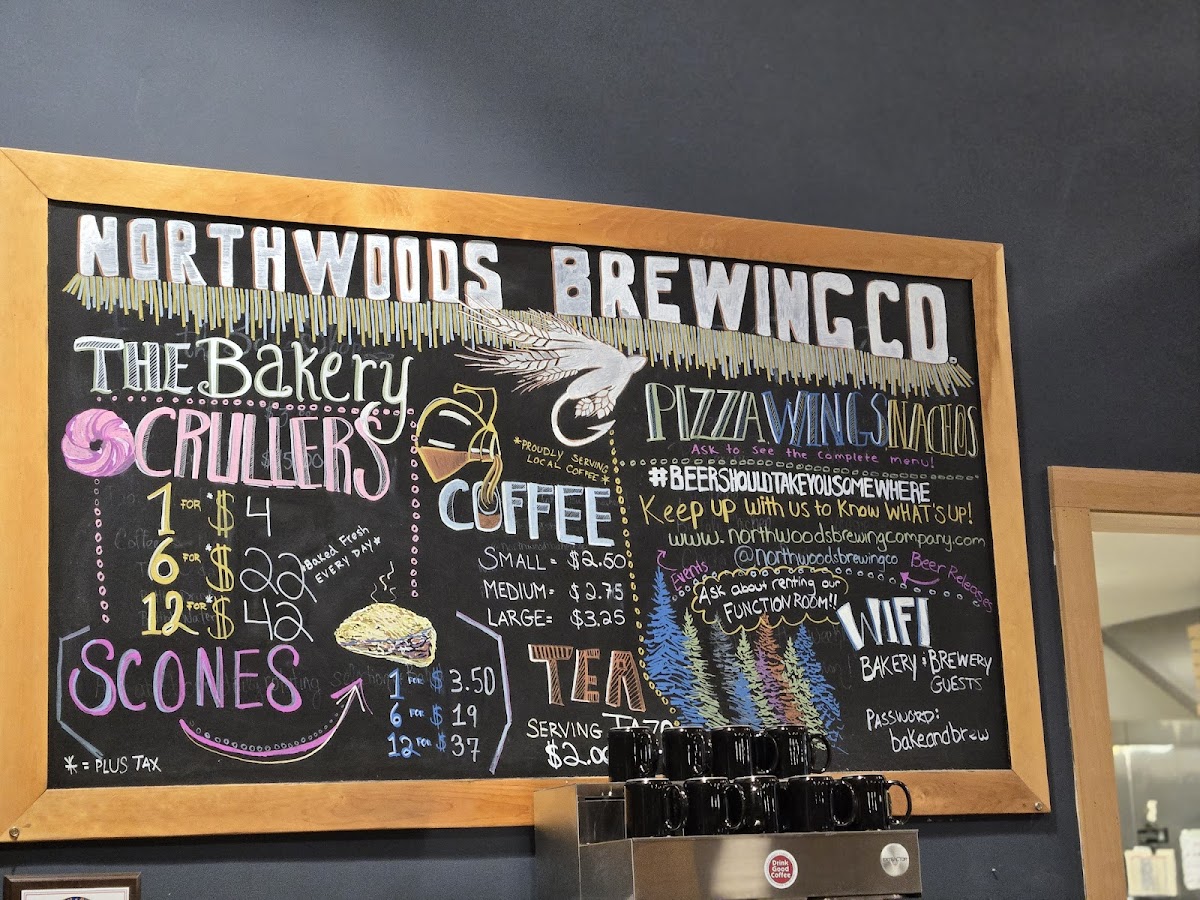 NORTHWOODS BREWING CO.
THE Bakery
CRULLERS
1 FOR *$ 4
6 FOR *$ 22
12 FOR *$ 42
*Baked Fresh
EVERY DAY*
SCONES
1 FOR $ 3.50
6 FOR $ 19
12 FOR $ 37
* = PLUS TAX
*PROUDLY SERVING
LOCAL COFFEE*
COFFEE
SMALL = $2.50
MEDIUM = $2.75
LARGE = $3.25
TEA
SERVING TAZO
$2.00
PIZZA WINGS NACHOS
ASK to see the complete menu!
#BEERSHOULDTAKEYOUSOMEWHERE
Keep up with us to know WHAT'S UP!
www.northwoodsbrewingcompany.com
@northwoodsbrewingco
Events
Beer Releases
Ask about renting our
FUNCTION ROOM!!
WIFI
BAKERY & BREWERY
GUESTS
PASSWORD:
bakeandbrew
Drink
Good
Coffee